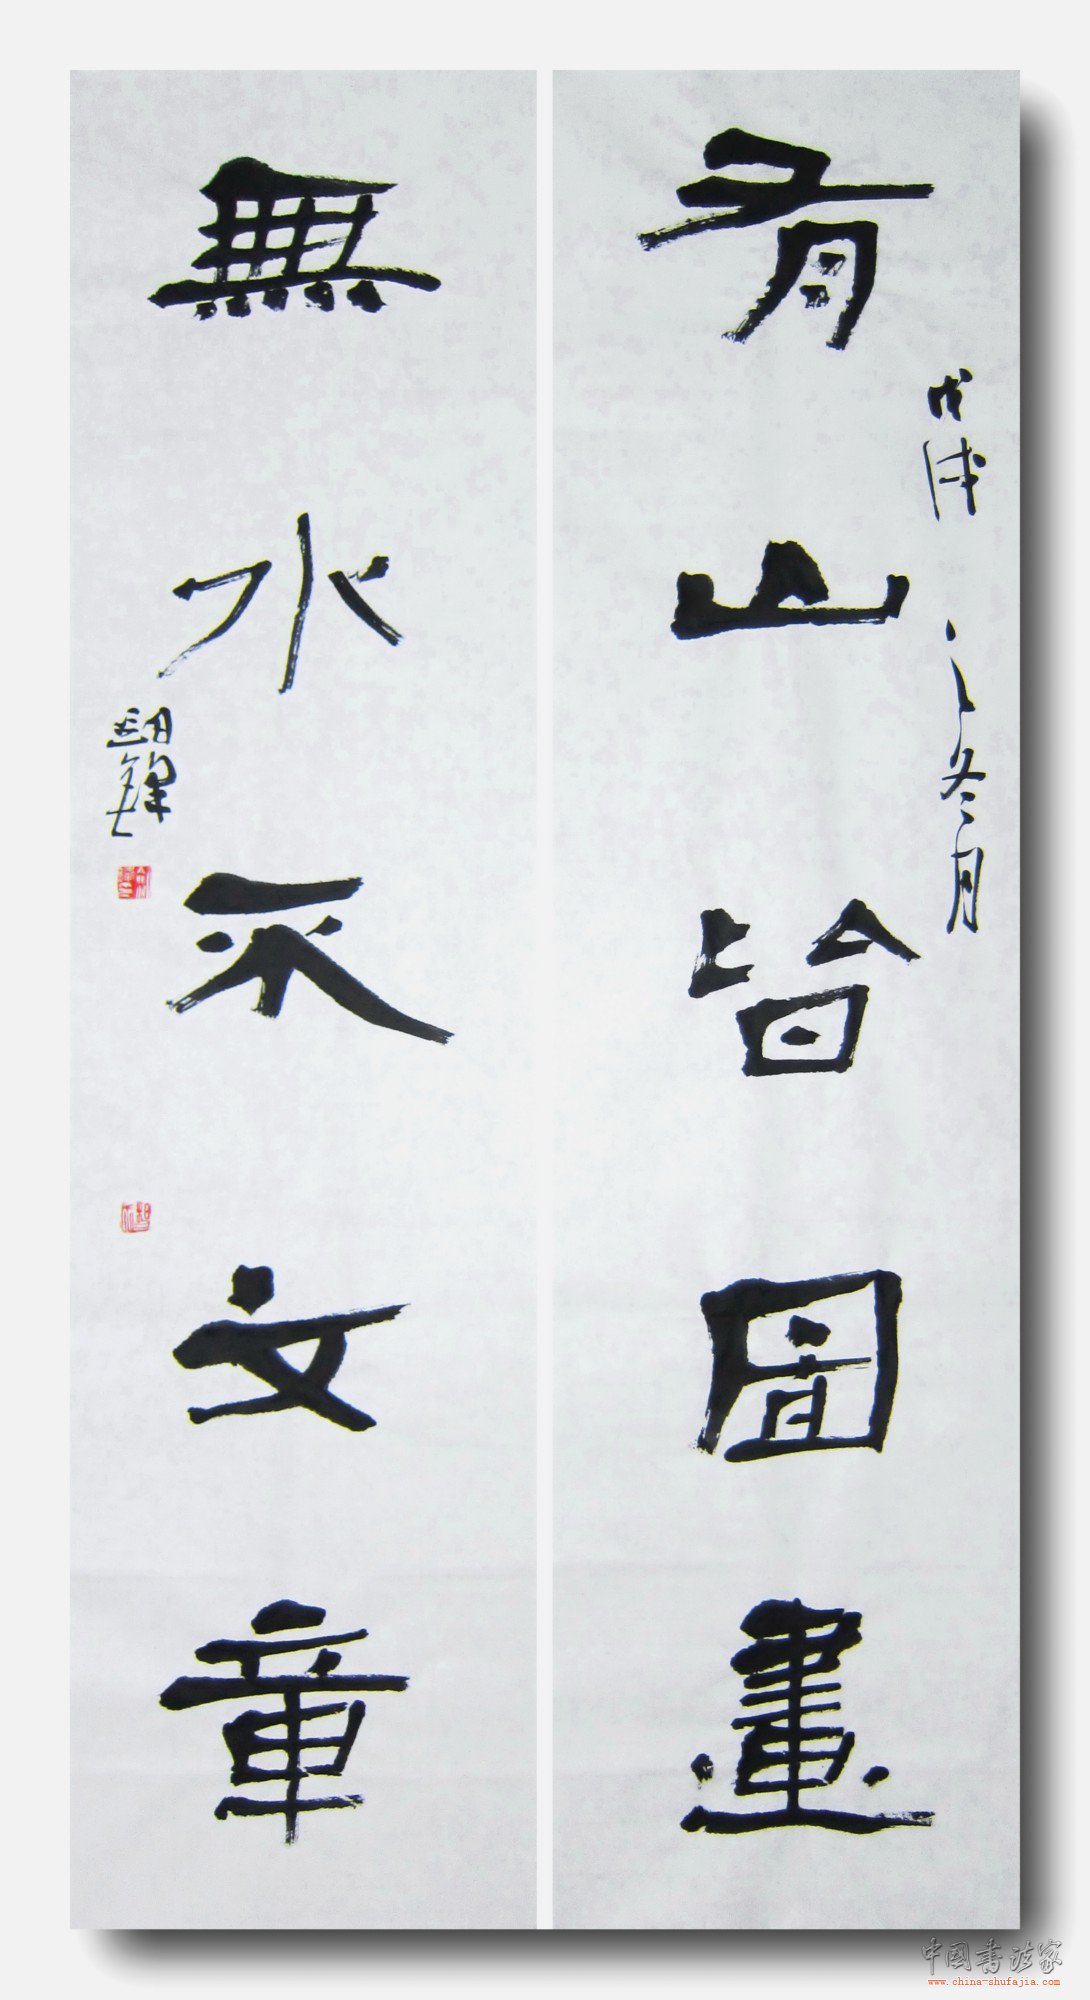 有山皆图畫
戊戌之冬月
無水不文章
中国书法家
www.china-shufajia.com